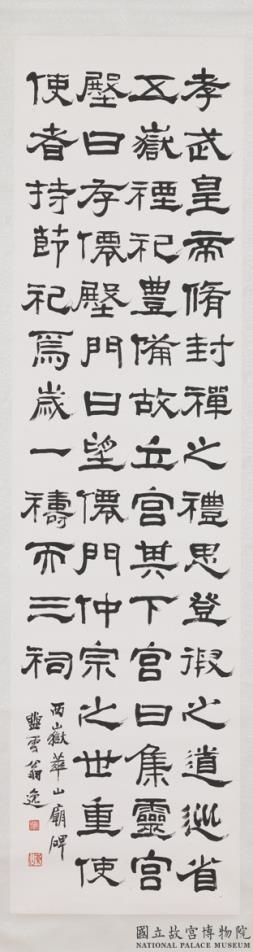 孝武皇帝脩封禪之禮思登徦之道巡省
五嶽禋祀豊備故立宮其下宮曰集靈宮
殿曰存僊殿門曰望僊門仲宗之世重使
使者持節祀焉歲一禱而三祠
西嶽華山廟碑
雪翁逸
國立故宮博物院
NATIONAL PALACE MUSEUM